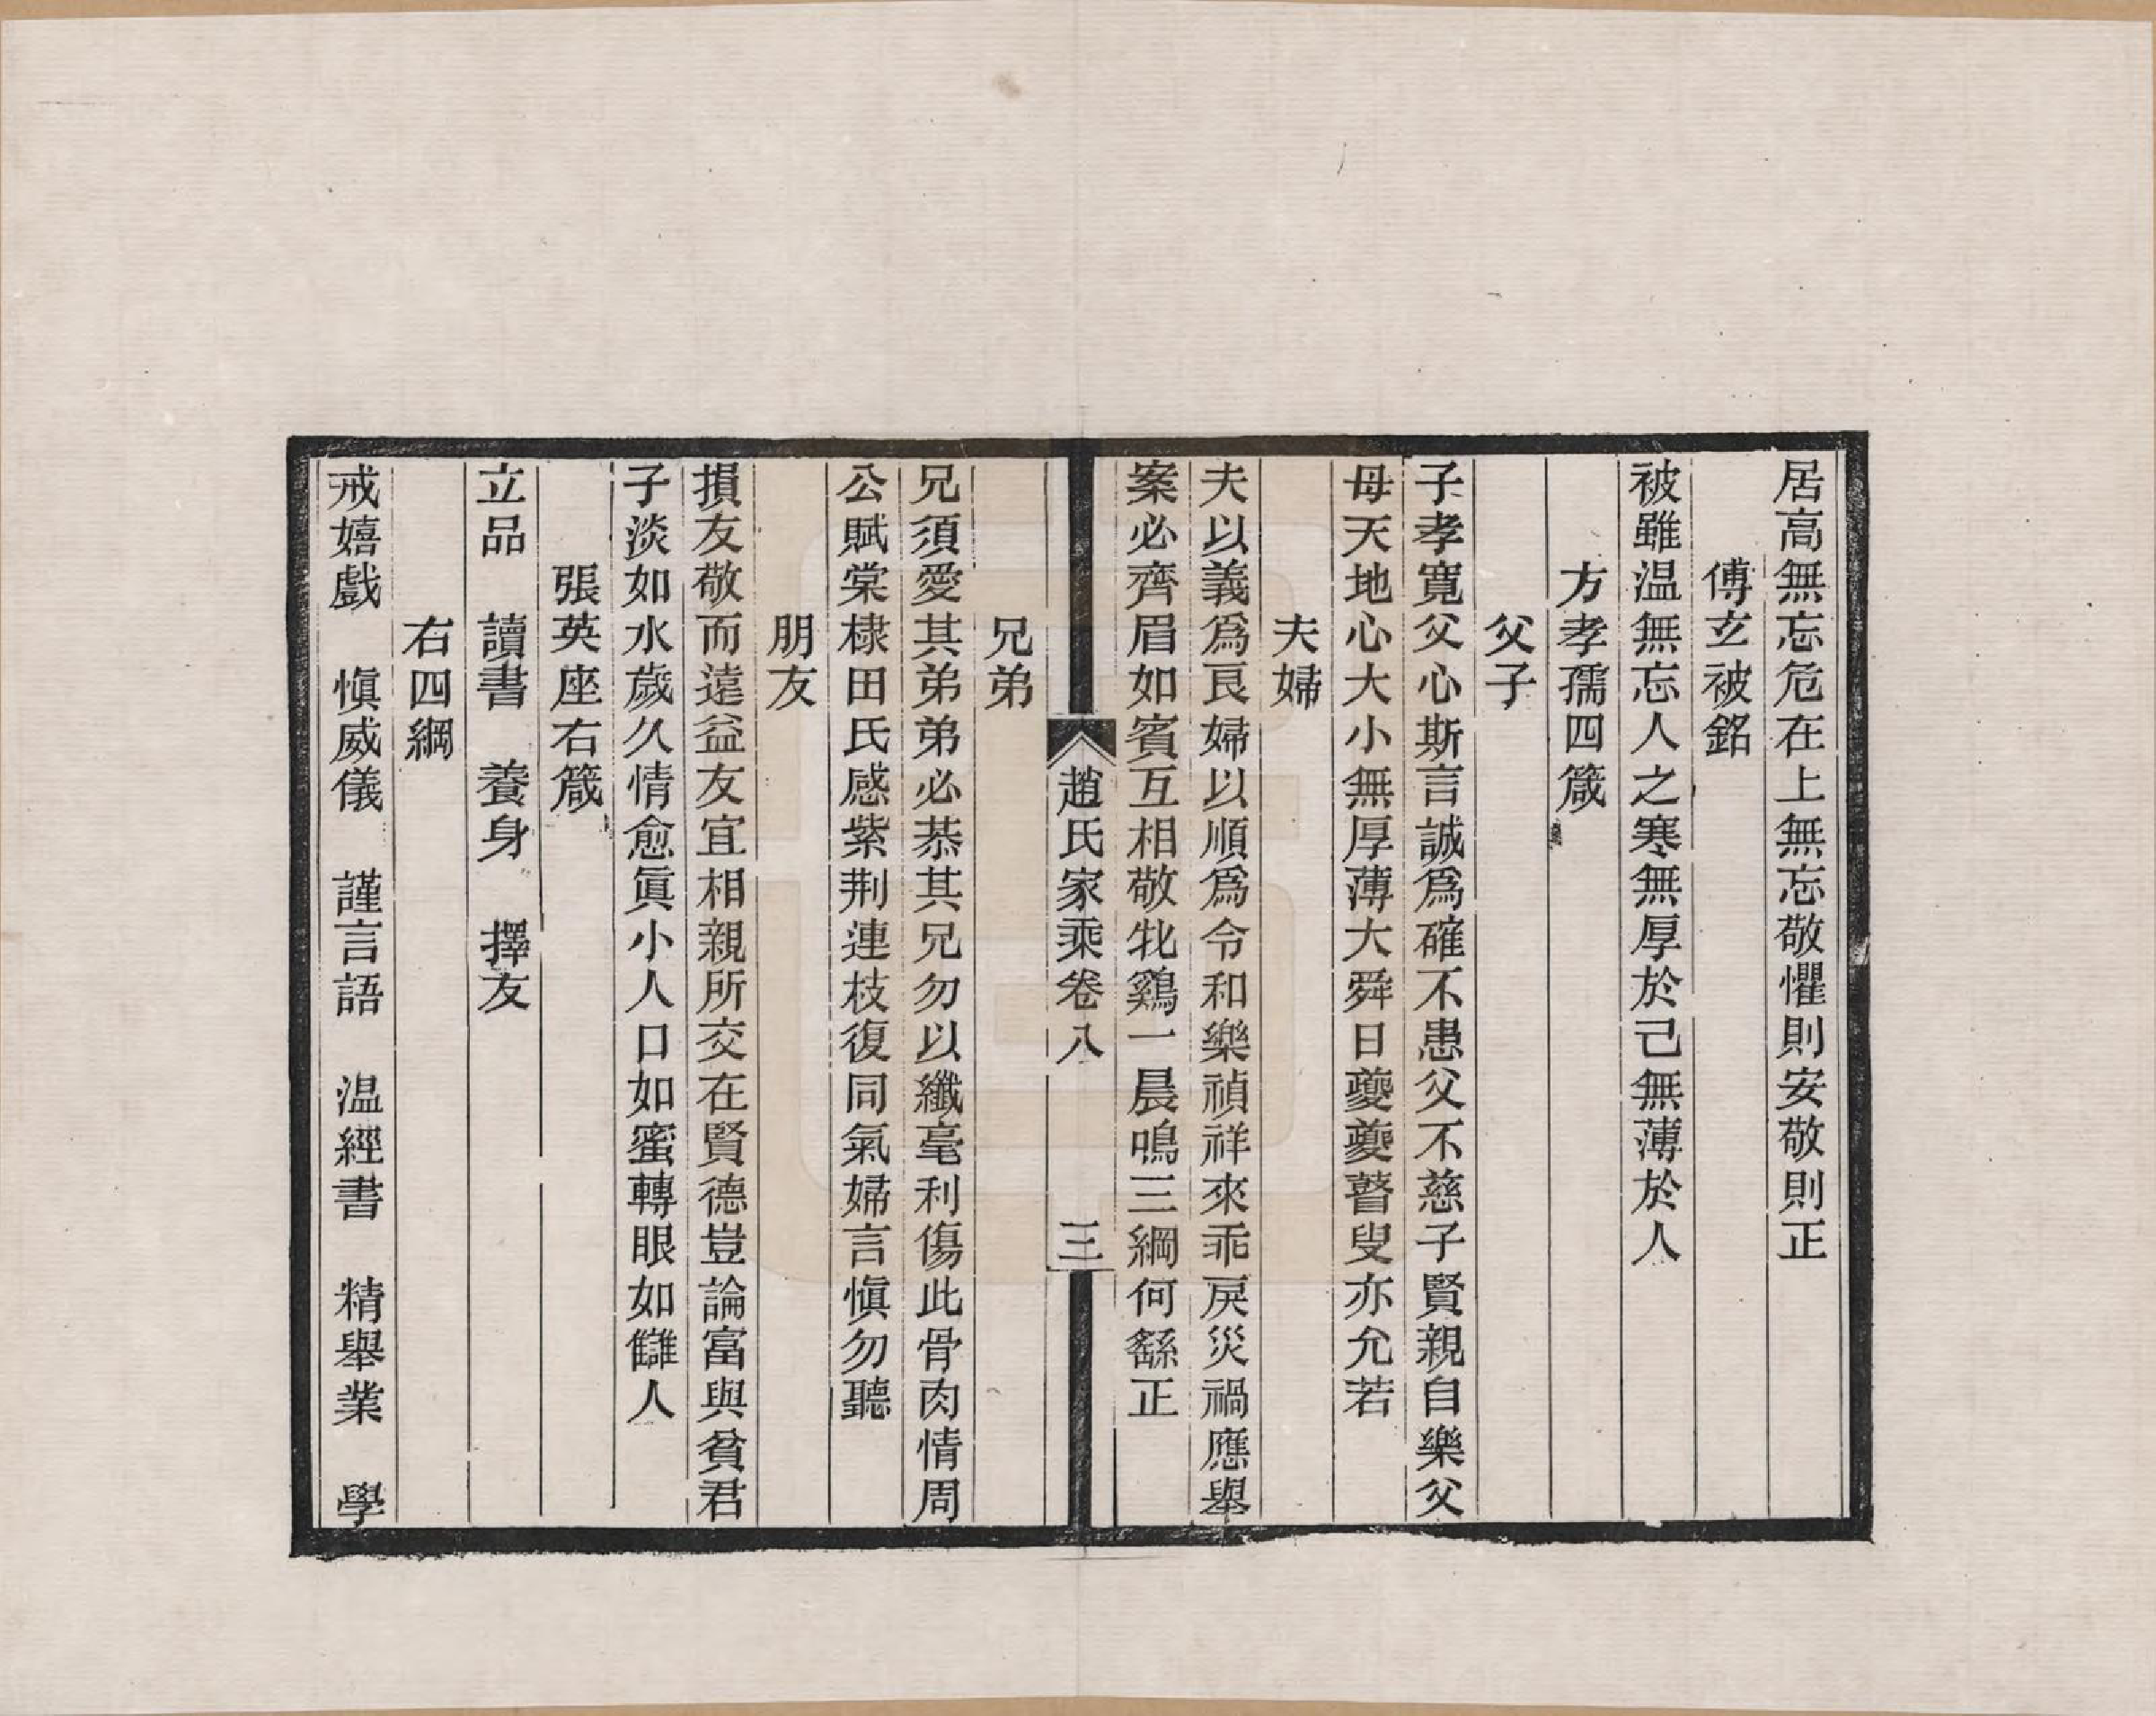 居高無忘危在上無忘敬懼則安敬則正
傅玄被銘
被雖温無忘人之寒無厚於己無薄於人
方孝孺四箴
父子
子孝寬父心斯言誠爲確不患父不慈子賢親自樂父
母天地心大小無厚薄大舜日夔夔瞽叟亦允若
夫婦
夫以義爲良婦以順爲令和樂禎祥來乖戾災禍應舉
案必齊眉如賓互相敬牝鷄一晨鳴三綱何繇正
趙氏家乘卷八 三
兄弟
兄須愛其弟弟必恭其兄勿以纖毫利傷此骨肉情周
公賦棠棣田氏感紫荆連枝復同氣婦言愼勿聽
朋友
損友敬而遠益友宜相親所交在賢德豈論富與貧君
子淡如水歲久情愈眞小人口如蜜轉眼如讎人
張英座右箴
立品 讀書 養身 擇友
右四綱
戒嬉戲 愼威儀 謹言語 温經書 精舉業 學